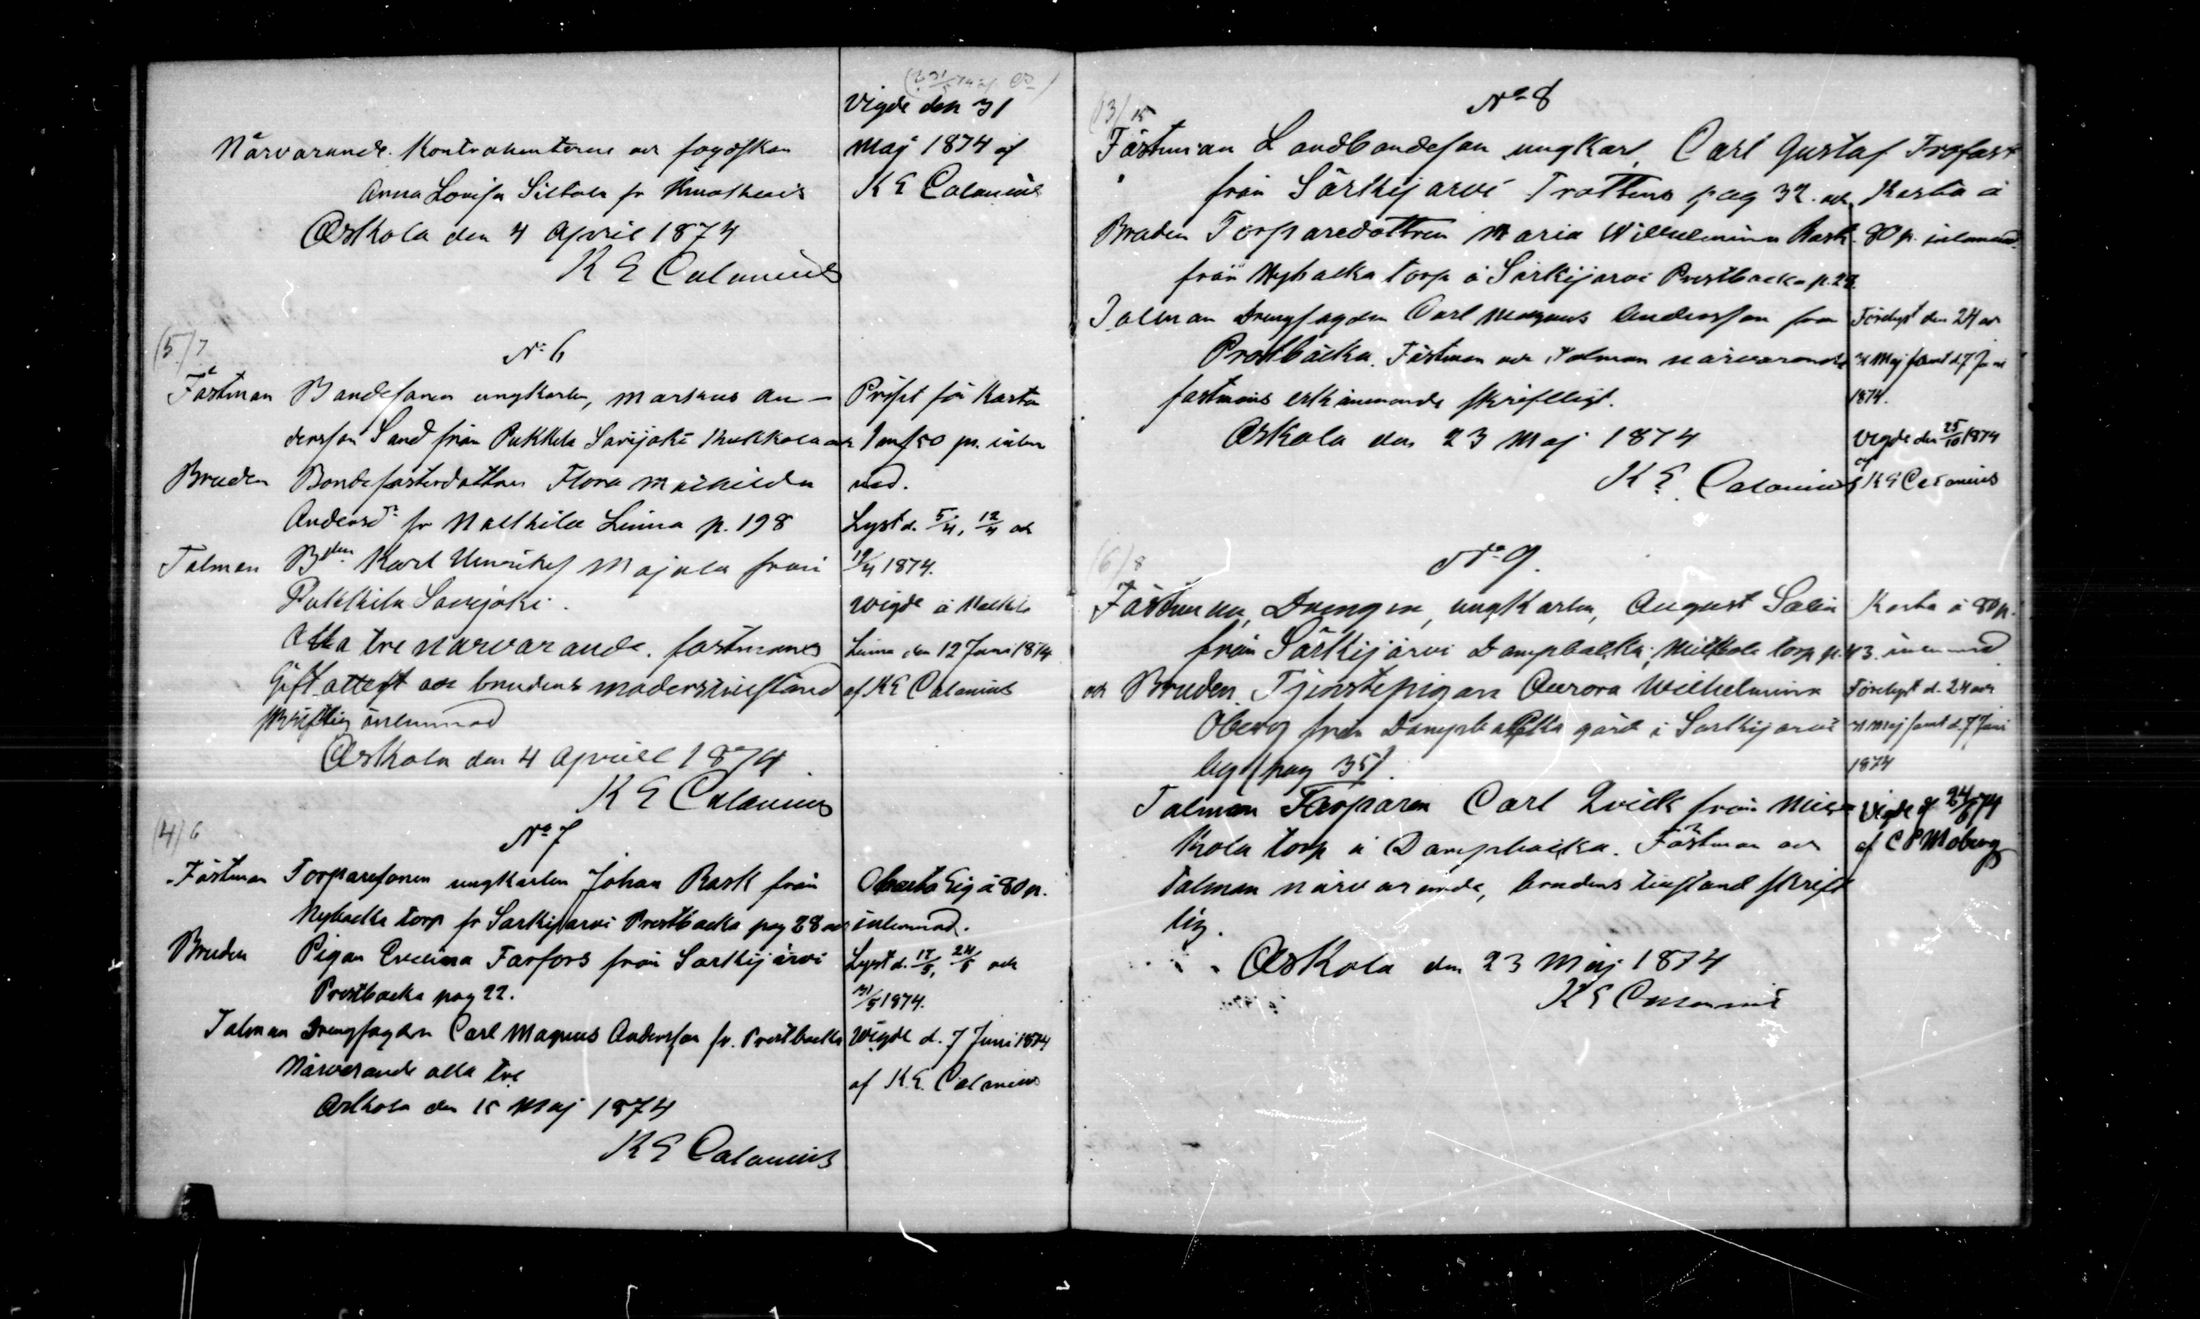 Vigde den 31
Närvarande Kontrahenterne och
Maj 1874 af
Anna Lovisa
K E Calonius
Askola den 4 April 1874
K E Calonius
(5)/7
No 6
Fästman Bondesonen ungkarlen, Markus An-
dersson Sand från Pukkila Savijoki och
Bruden Bondedottren Flora Mathilda
Andersdr fr p. 198
Talman Bdn Karl Majala från
Pukkila Savijoki.
Alla tre närvarande. fästmans
attest och brudens
skriftlig inlemnad
Askola den 4 Aprill 1874
K E Calonius
Priset för Karta
1 mf 50 pi. inlem
nad.
Lyst d. 5/4, 12/4 och
19/4 1874.
Vigde å
den 12 Juni 1874
af K E Calonius
(4)/6
No 7
Fästman Torparesonen ungkarlen Johan Rask från
Nybacka torp fr Särkijärvi Prestbacka pag 28 och
Bruden Pigan Evelina Farfors från Särkijärvi
Prestbacka pag 22.
Talman Carl Magnus Andersson fr. Prestbacka
Närvarande alla tre
Askola den 15 Maj 1874
K E Calonius
Charta Sig. à 80 p.
inlemnad.
Lyst d. 17/5, 24/5 och
31/5 1874.
Vigde d. 7 Juni 1874
af K E Calonius
(13)/15
No 8
Fästman Landbondeson ungkarl, Carl Gustaf Trofast
från Särkijärvi Trottens pag 32. och
Bruden Torparedottren Maria Wilhelmina Rask
från Nybacka torp å Särkijärvi Prestbacka p. 28.
Talman Carl Magnus Andersson från
Prestbacka. Fästman och Talman närvarande
fästmös erkännande skriftligt.
Askola den 23 Maj 1874
K E Calonius
Karta à
80 p. inlemnad.
Förelyst den 24 och
31 Maj samt d. 7 Juni
1874.
Vigde den 25/10 1874
af K E Calonius
(6)/8
No 9.
Fästman, Drengen, ungkarlen, August Salin
från Särkijärvi Dampbacka, torp p. 43.
och Bruden Tjenstepigan Aurora Wilhelmina
Öberg från Dampbacka gård i Särkijärvi
by (pag 35).
Talman Torparen Carl Qvick från
kola torp å Dampbacka. Fästman och
Talman närvarande, brudens tillstånd skrift
lig.
Askola den 23 Maj 1874
K E Calonius
Karta à 80 p.
inlemnad
Förelyst d. 24 och
31 Maj samt d. 7 Juni
1874
Vigde
af C Moberg